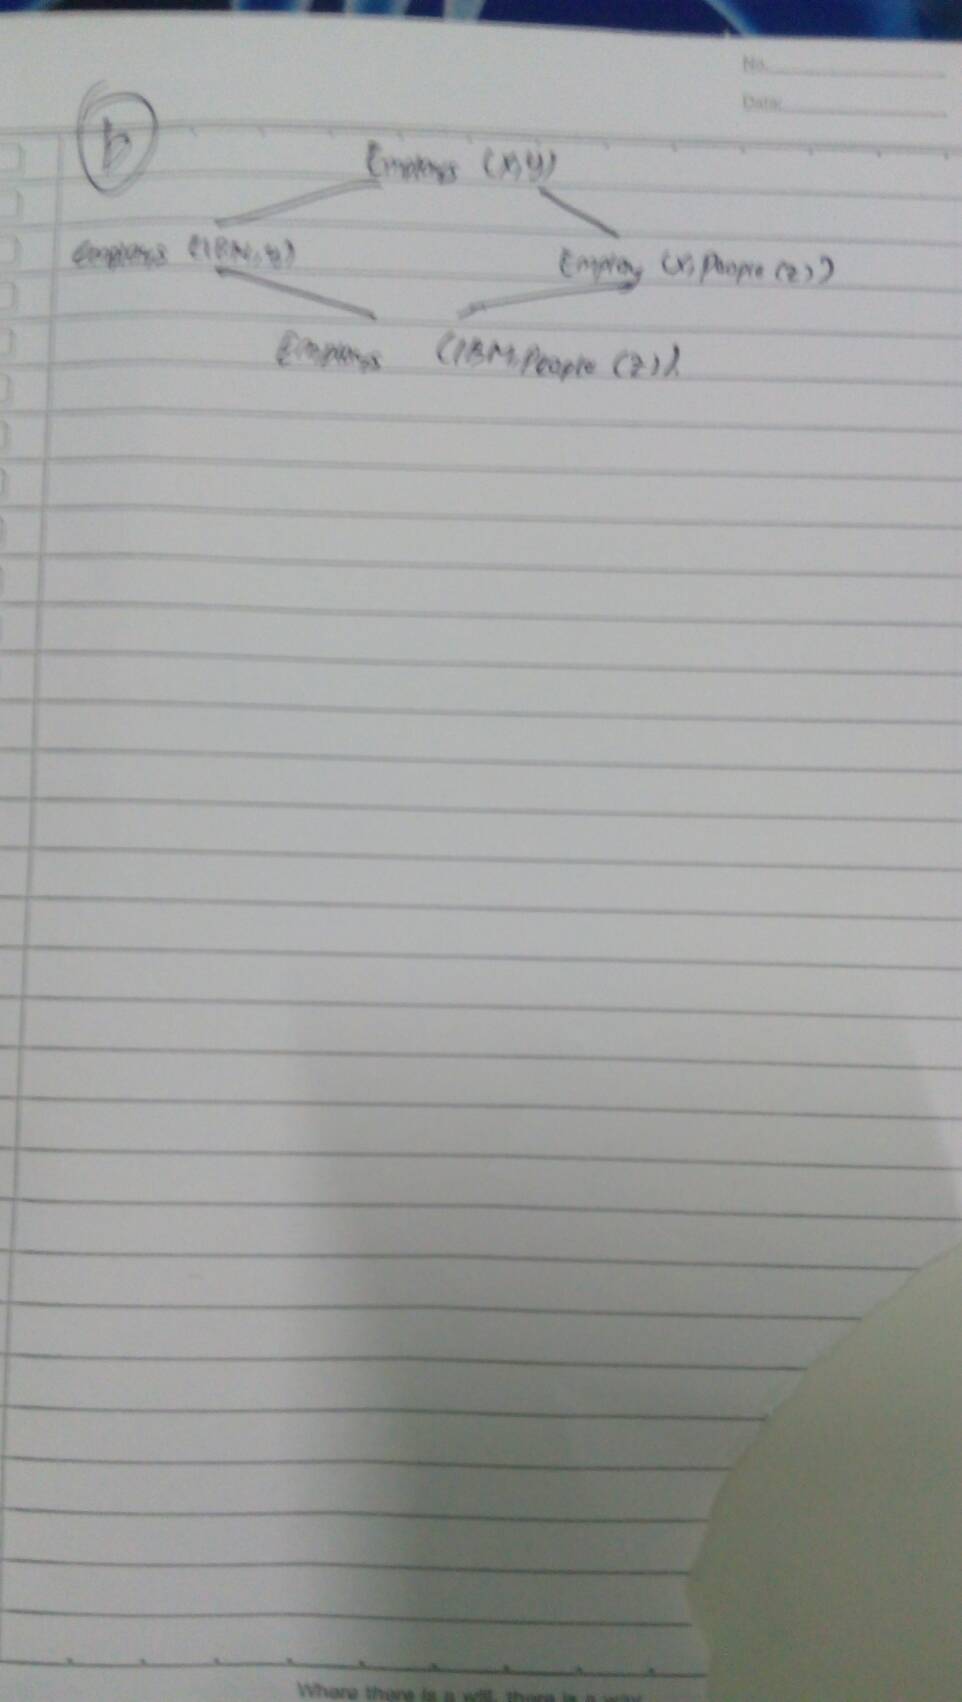 No.
Date:
b
Employs (x,y)
Employs (IBM,y) Employ (x, People (z))
Employs (IBM, People (z)).
Where there is a will, there is a way